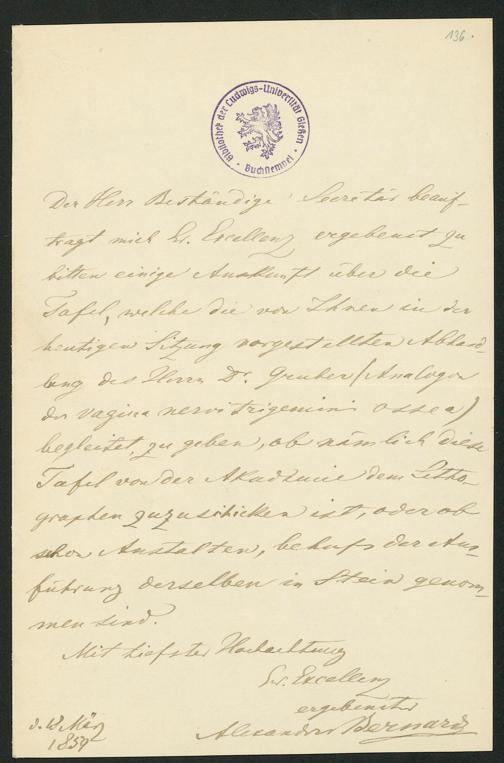 136.
Bibliothek der Ludwigs-Universität Gießen
Buchstempel
Der Herr Beständige Secretär beauf-
tragt mich Ew. Excellenz ergebenst zu
bitten einige Auskunft über die
Tafel, welche die von Ihnen in der
heutigen Sitzung vorgestellten Abhand-
lung des Herrn Dr. Gruber (Analogon
der vagina nervi trigemini ossea)
begleitet, zu geben, ob nämlich diese
Tafel von der Akademie dem Litho-
graphen zuzuschicken ist, oder ob
schon Anstalten, behufs der Aus-
führung derselben in Stein genom-
men sind.
Mit tiefster Hochachtung
Ew. Excellenz
ergebenster
Alexander Bernard
d. März
1859